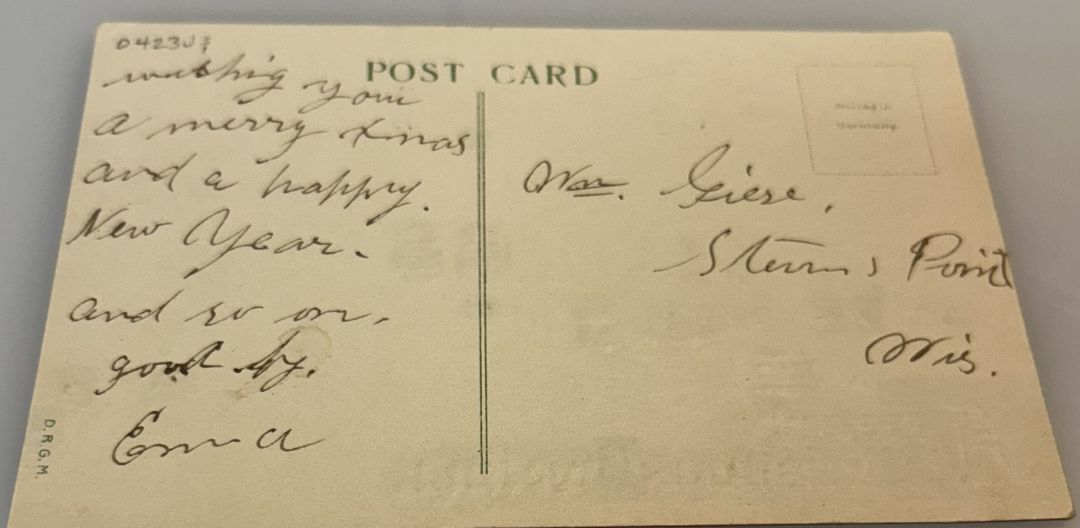 0423U
POST CARD
wishing you
a merry Xmas
and a happy.
New Year.
and so on.
good by.
Emma
Wm. Giese,
Stevens Point
Wis.
Printed in
Germany
D.R.G.M.